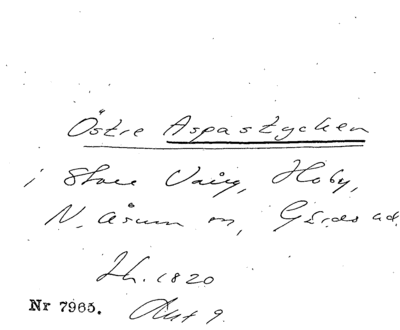 Östre Aspastycken
i Stora Väig, Hoby,
N. Åsum m, Gärds ad.
Ih. 1820
Nr 7965. Akt 9.